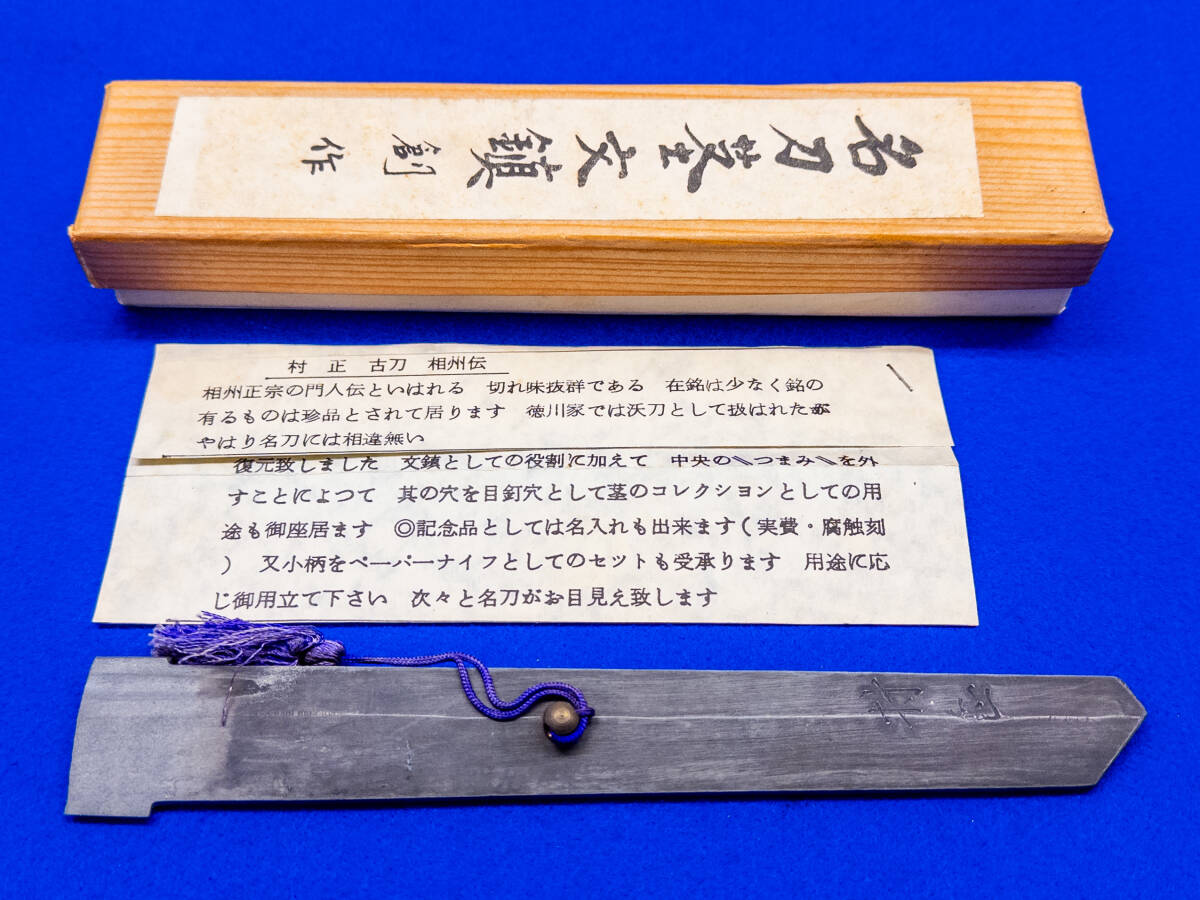 名刀茎文鎮 創作
村 正　古刀　相州伝
相州正宗の門人伝といはれる　切れ味抜群である　在銘は少なく銘の
有るものは珍品とされて居ります　徳川家では沃刀として扱はれたが
やはり名刀には相違無い
復元致しました　文鎮としての役割に加えて　中央の〝つまみ〟を外
すことによつて　其の穴を目釘穴として茎のコレクションとしての用
途も御座居ます　◎記念品としては名入れも出来ます(実費・腐触刻
)　又小柄をペーパーナイフとしてのセットも受承ります　用途に応
じ御用立て下さい　次々と名刀がお目見え致します
村正